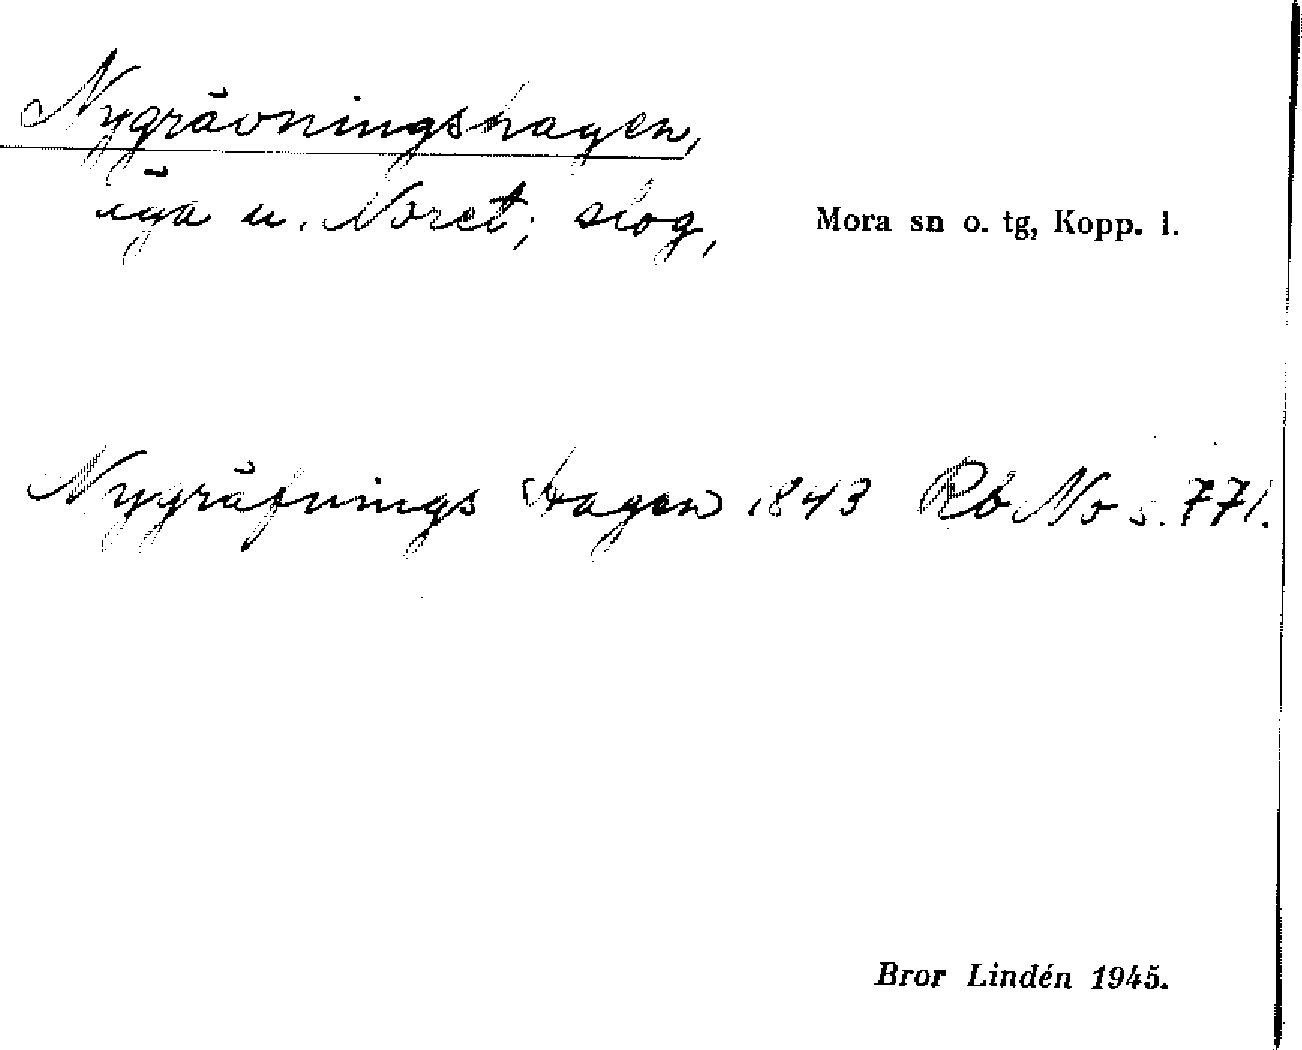 Nygrävningshagen,
äga u. Noret; skog,
Mora sn o. tg, Kopp. l.
Nygräfnings Hagen 1843 Rb No s. 771.
Bror Lindén 1945.